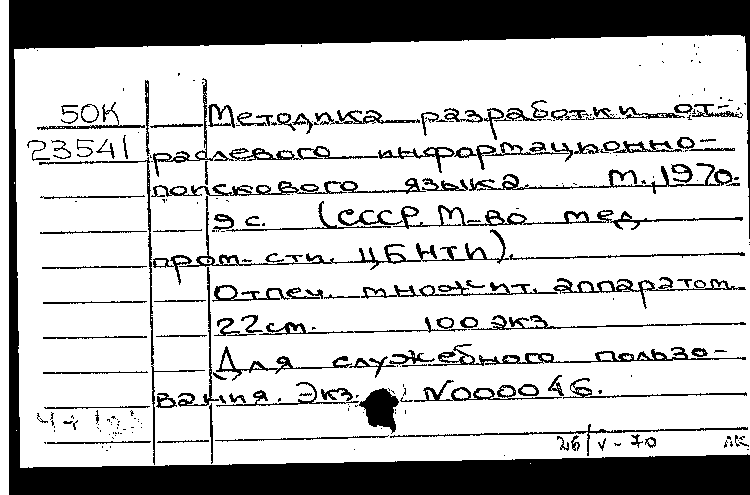 50К Методика разработки от-
23541 раслевого информационно-
поискового языка. М., 1970.
9 с. (СССР. М-во мед.
пром-сти. ЦБНТИ).
Отпеч. множит. аппаратом.
22см. 100 экз.
Для служебного пользо-
вания. Экз. N000046.
26/V-70 ЛК